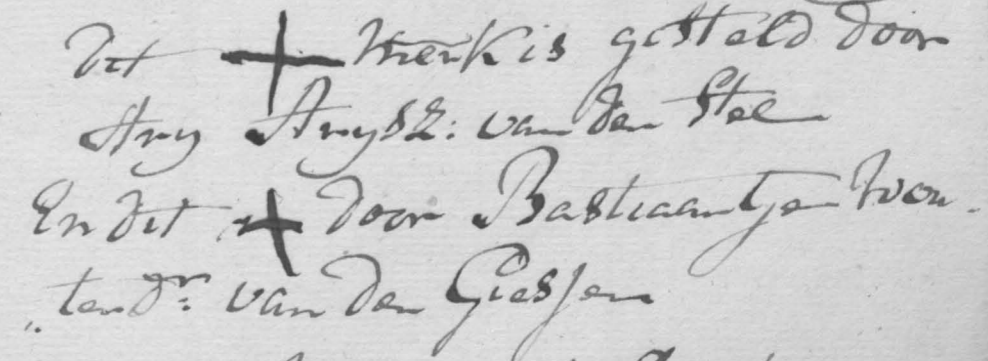 Dit + Merk is gesteld door
Ary Arysz: van den Stel
En dit + door Bastiaantje Wou„
„terdr. van den Giessen